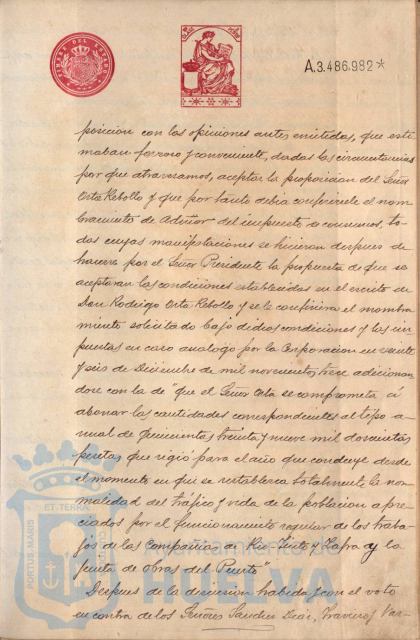 TIMBRE DEL ESTADO
A.3.486.982*
posición con las opiniones antes emitidas, que esti
maban forzoso y conveniente, dadas las circunstancias
por que atravesamos, aceptar la proposición del Señor
Orta Rebollo y que por tanto debía conferirsele el nom
bramiento de Admor del impuesto de consumos, to
das cuyas manifestaciones se hicieron despues de
hacerse por el Señor Presidente la propuesta de que se
aceptaran las condiciones establecidas en el escrito de
Don Rodrigo Orta Rebollo y se le confiriera el nombra
miento solicitado bajo dichas condiciones y las im
puestas en caso analogo por la Corporación en veinte
y seis de Diciembre de mil novecientos trece adicionan
dose con la de "que el Señor Orta se comprometa á
abonar las cantidades correspondientes al tipo a
nual de quinientas treinta y nueve mil doscientas
pesetas que rigió para el año que concluye desde
el momento en que se restablezca totalmente la nor
malidad del tráfico y vida de la poblacion apre
ciados por el funcionamiento regular de los traba
jos de las Compañias de Rio-Tinto y Zafra y la
Junta de obras del Puerto"
Despues de la discusion habida y con el voto
en contra de los Señores Sanchez Diaz, Traviero, Vaz
PORTUS MARIS ET TERRÆ
Ayuntamiento de
HUELVA